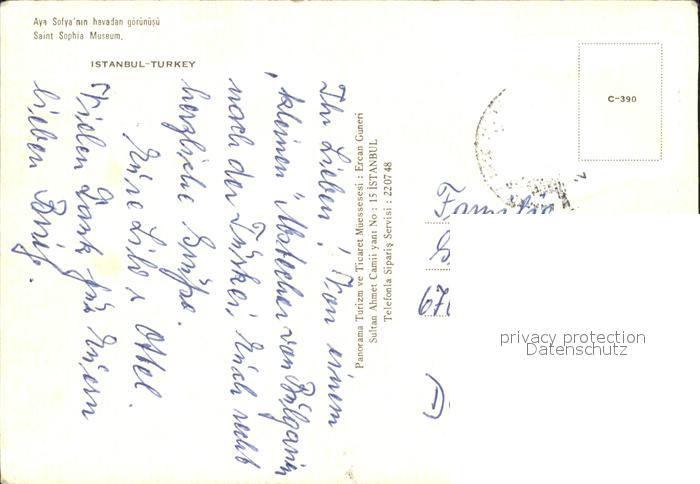 Aya Sofya'nın havadan görünüşü
Saint Sophia Museum.
ISTANBUL-TURKEY
Ihr Lieben! Von einem
kleinen "Abstecher von Bulgarien
nach der Türkei, Euch
herzliche Grüße.
Eure u. Ottel.
Vielen Dank für Euern
lieben Brief.
Panorama Turizm ve Ticaret Müessesesi : Ercan Güneri
Sultan Ahmet Camii yanı No : 15 İSTANBUL
Telefonla Sipariş Servisi : 22 07 48
C-390
Familie
67
D
privacy protection
Datenschutz